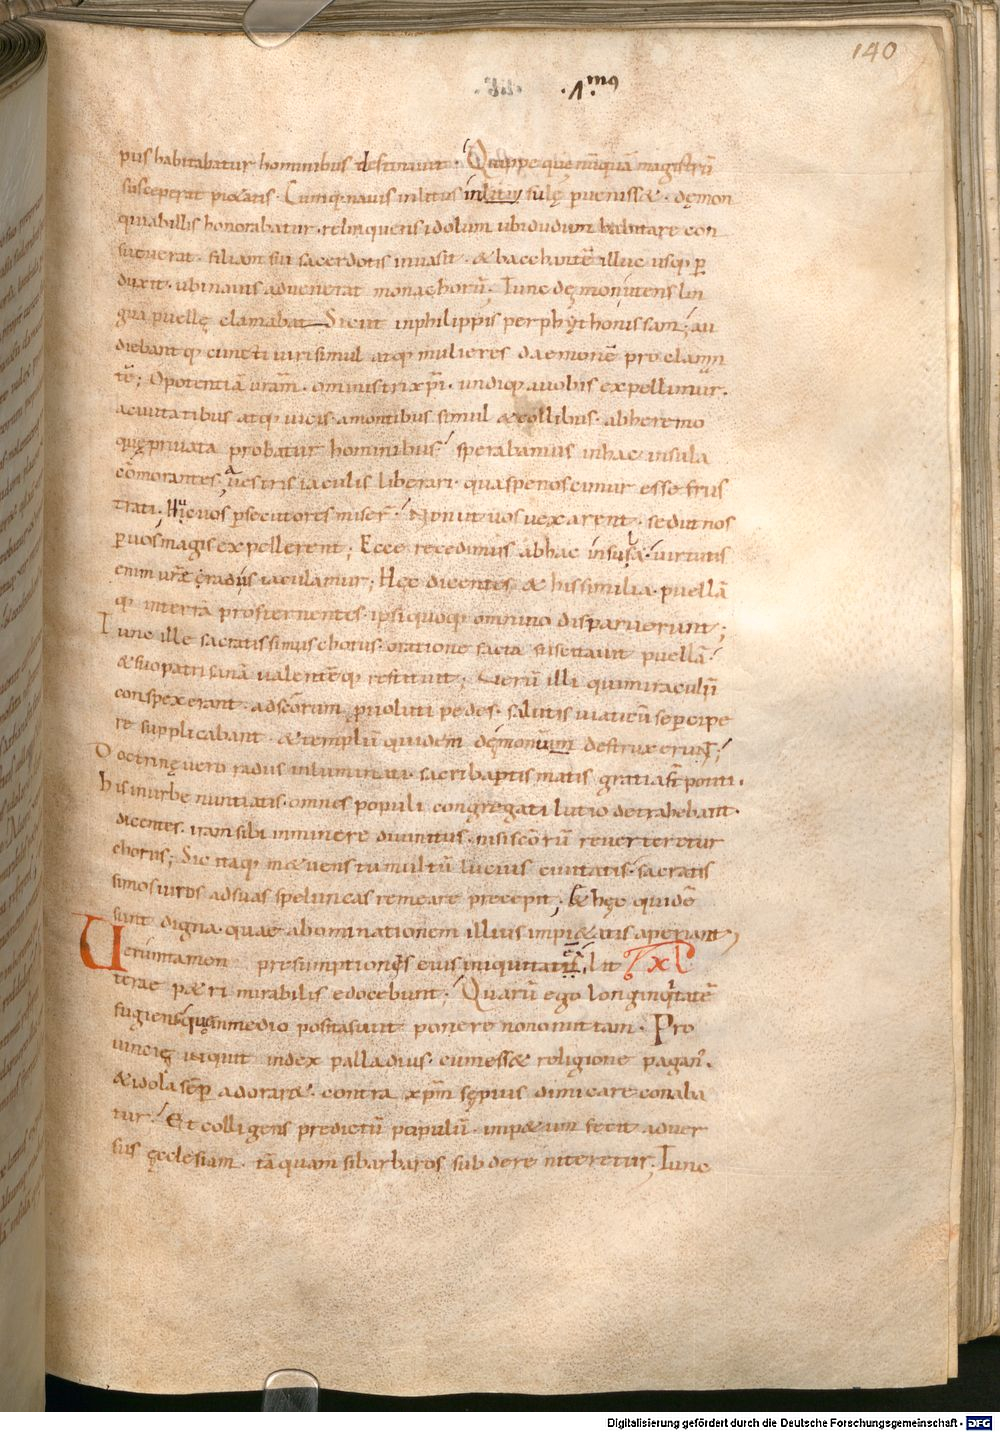 140
.1.mꝰ
pus habitabatur hominibus destinauit. Quippe quę nūquā magistrū
susceperat pietatis. Cumq; nauis in litus insulę puenisset. dęmon
qui ab illis honorabatur. relinquens idolum ubi dudum habitare con
sueuerat. filiam sui sacerdotis inuasit. & bacchantē illuc usq; p
duxit. ubi nauis aduenerat monachorū. Tunc dęmon utens lin
gua puellę clamabat Sicut in philippis per phythonissam; au
diebantq; cuncti uiri simul atq; mulieres daemonē proclaman
tē; O potentiā uram. o ministri xp̄i. undiq; a uobis expellimur.
a ciuitatibus atq; uicis. a montibus simul & collibus. ab heremo
quę priuata probatur hominibus. sperabamus in hac insula
cōmorantes, a uestris iaculis liberari. qua spe noscimur esse frus
trati. Huc uos psecutores miser. Non ut uos uexarent. sed ut nos
p uos magis expellerent; Ecce recedimus ab hac insula. uirtutis
enim uræ radiis iaculamur; Hęc dicentes & his similia. puellā
q; in terrā prosternentes. ipsi quoq; omnino disparuerunt;
Tunc ille sacratissimus chorus. oratione facta suscitauit puellā.
& suo patri sanā ualentēq; restituit; Uerū illi qui miraculū
conspexerant. ad scōrum puoluti pedes. salutis uiaticū se percipe
re supplicabant. & templū quidem dęmonum destruxerunt;
Doctrinę uero radiis inluminati. sacri baptismatis gratia st potiti.
his in urbe nuntiatis. omnes populi congregati lutio detrahebant.
dicentes. iram sibi inminere diuinitus. nisi scōrū reuerteretur
chorus; Sic itaq; metuens tumultū lucius ciuitatis. sacratis
simos uiros ad suas speluncas remeare precepit; & hęc quidē
sunt digna. quae abominationem illius impietatis aperiant
Ueruntamen presumptiones eius iniquitatū. lit XL
terae petri mirabilis edocebunt. Quarū ego longinqtatē
fugiens quę in medio positas sunt ponere non omittam. Pro
uincię inquit index palladius. cum esset religione pagan.
& idola semp adoraret. contra xpm sępius dimicare conaba
tur. Et colligens predictū populū. impetum fecit aduer
sus ęcclesiam. tāquam si barbaros subdere niteretur; Tunc
Digitalisierung gefördert durch die Deutsche Forschungsgemeinschaft - DFG